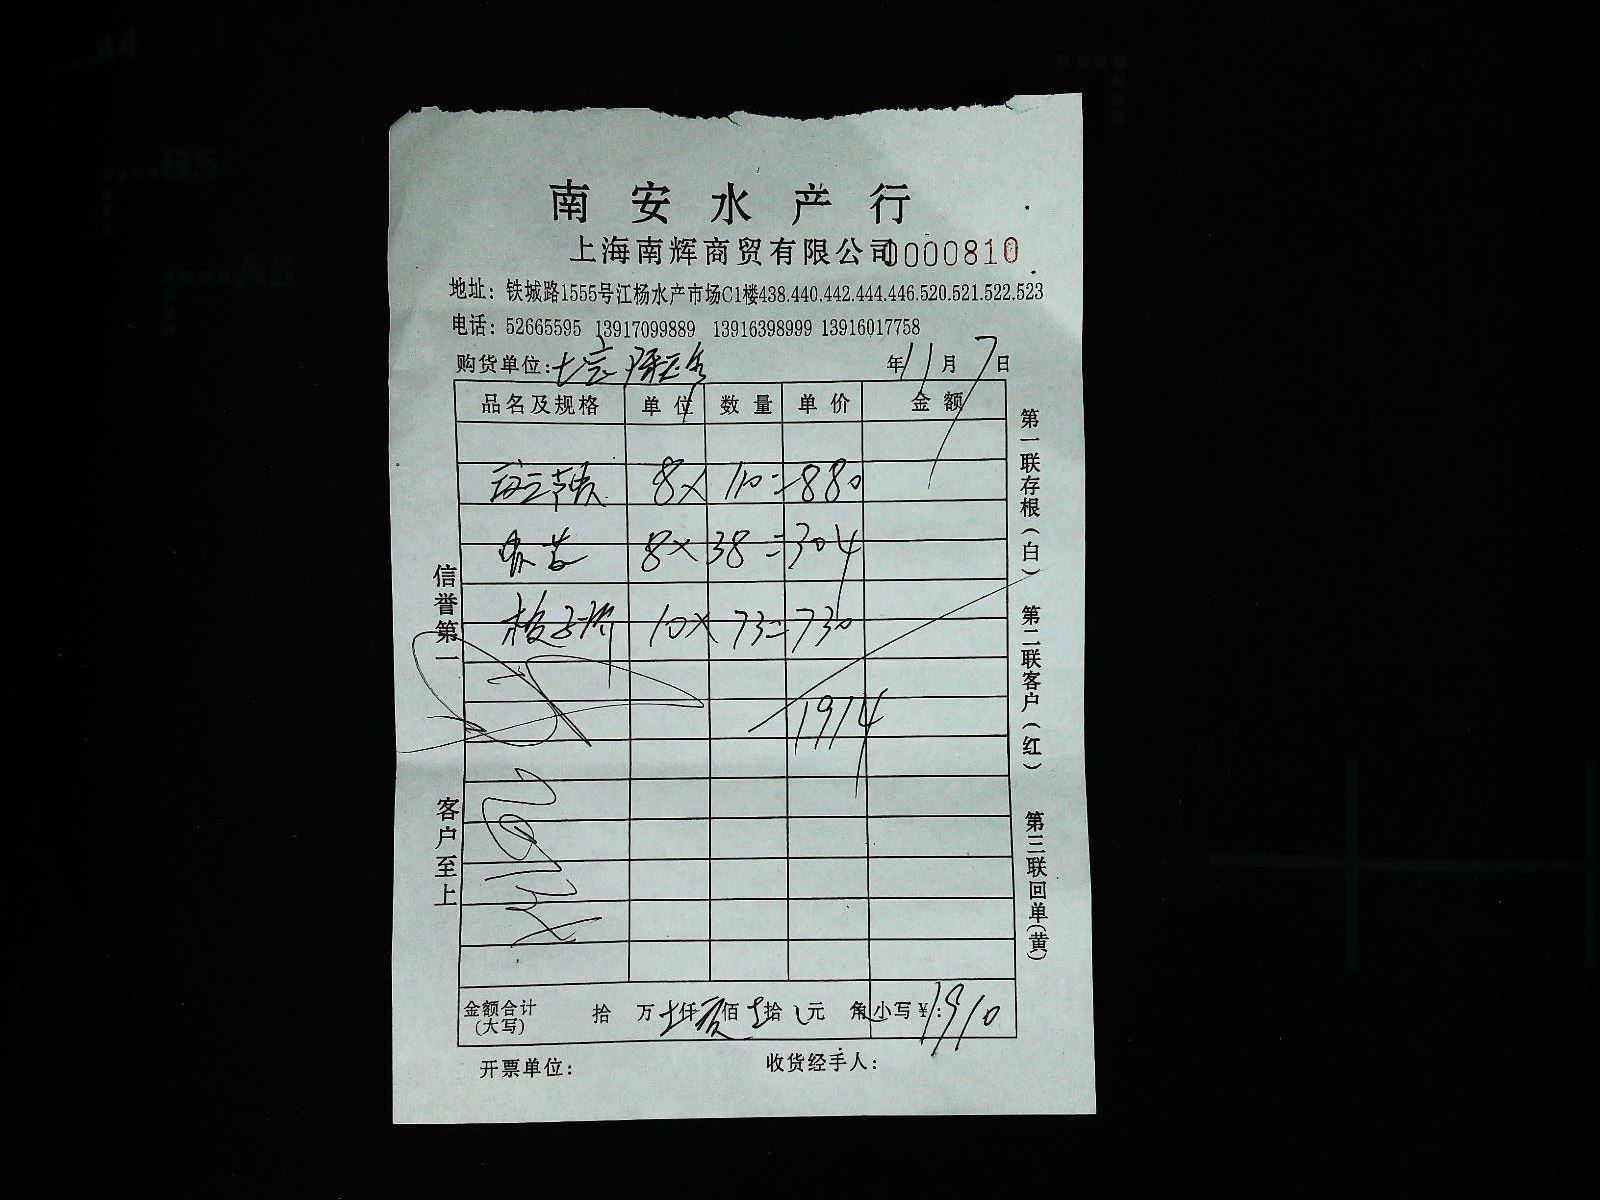 南安水产行
上海南辉商贸有限公司0000810
地址：铁城路1555号江杨水产市场C1楼438.440.442.444.446.520.521.522.523
电话：52665595 13917099889 13916398999 13916017758
购货单位： 年11月7日
品名及规格 单位 数量 单价 金额
8×110=880
8×38=304
10×73=730
1914
金额合计（大写） 拾 万 仟 佰 拾 元 角 小写¥：1910
开票单位： 收货经手人：
信誉第一 客户至上
第一联存根（白） 第二联客户（红） 第三联回单（黄）